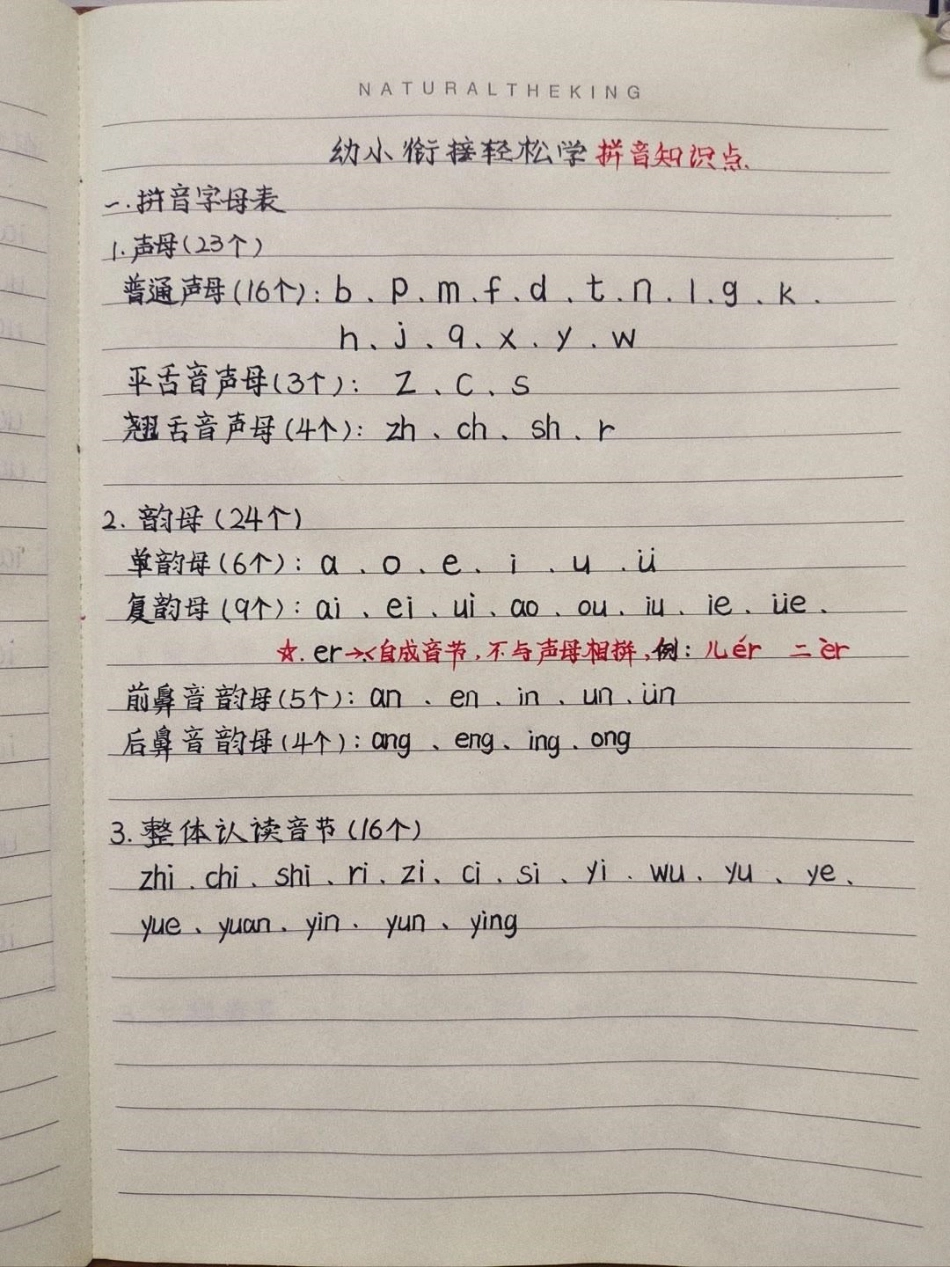 NATURALTHEKING
幼小衔接轻松学拼音知识点
一.拼音字母表
1.声母(23个)
普通声母(16个): b、p、m、f、d、t、n、l、g、k、
h、j、q、x、y、w
平舌音声母(3个): z、c、s
翘舌音声母(4个): zh、ch、sh、r
2.韵母(24个)
单韵母(6个): a、o、e、i、u、ü
复韵母(9个): ai、ei、ui、ao、ou、iu、ie、üe、
☆.er→自成音节,不与声母相拼,例:儿ér 二èr
前鼻音韵母(5个): an、en、in、un、ün
后鼻音韵母(4个): ang、eng、ing、ong
3.整体认读音节(16个)
zhi、chi、shi、ri、zi、ci、si、yi、wu、yu、ye、
yue、yuan、yin、yun、ying